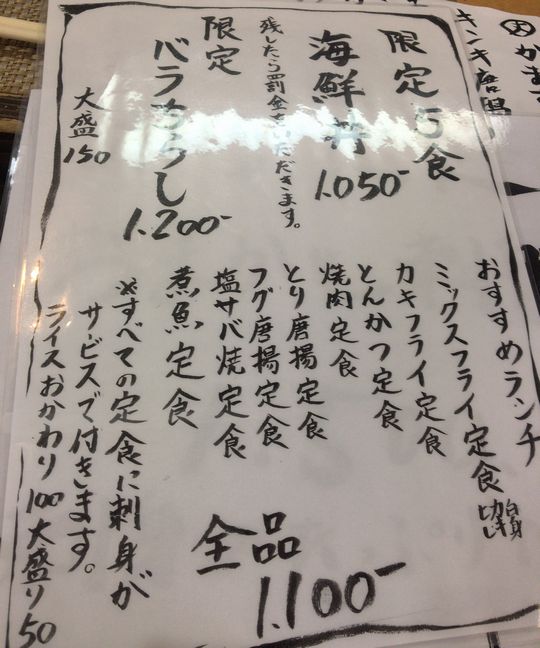 限定5食
海鮮丼
1.050-
残したら罰金をいただきます。
限定
バラちらし
1.200-
大盛150
おすすめランチ
ミックスフライ定食
カキフライ定食
とんかつ定食
焼肉定食
とり唐揚定食
フグ唐揚定食
塩サバ焼定食
煮魚定食
全品
1.100-
※すべての定食に刺身が
サービスで付きます。
ライスおかわり100大盛り50
キンキ唐揚